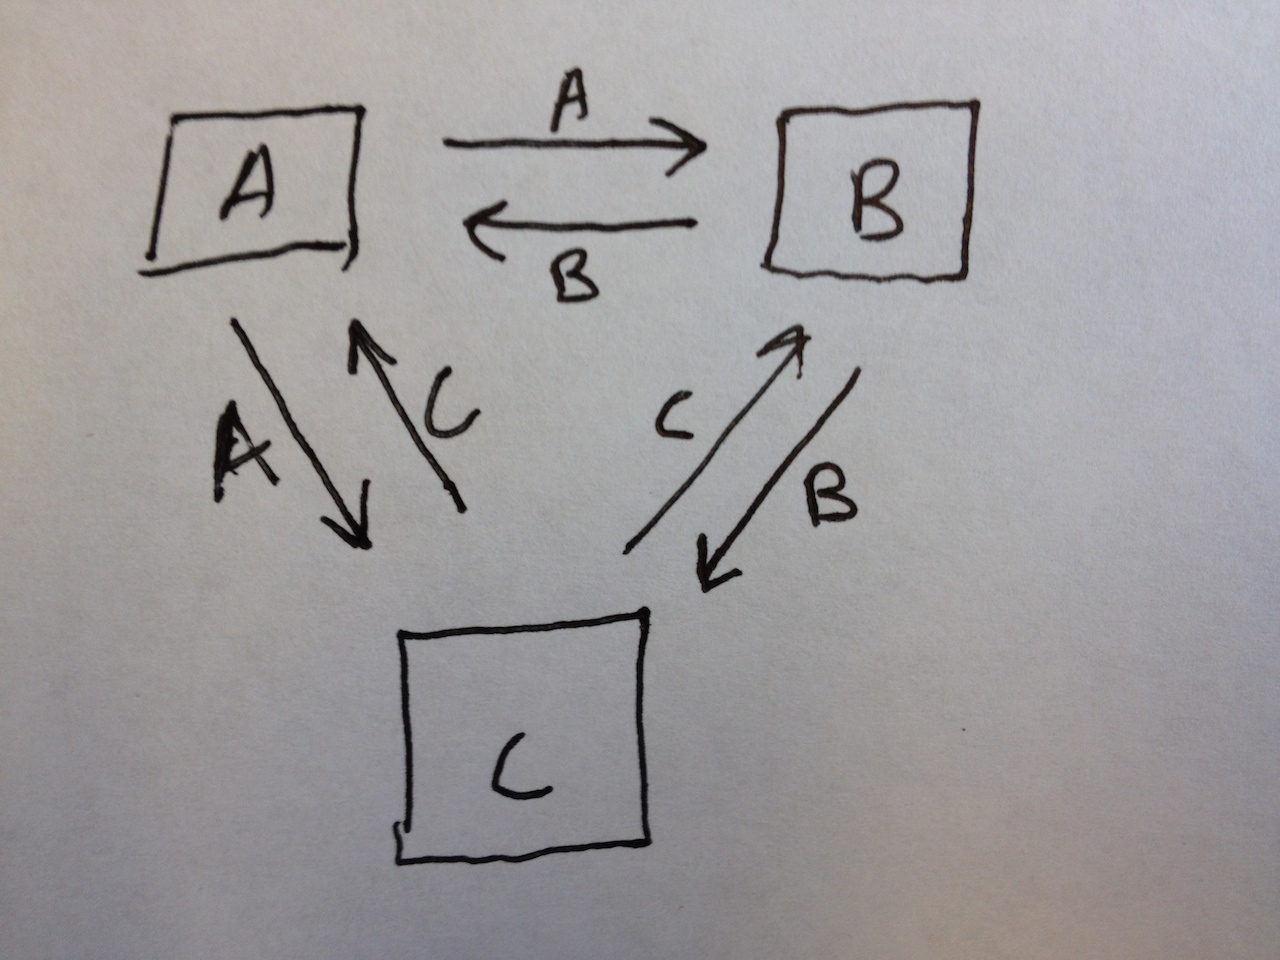 A
A
B
B
A
C
C
B
C